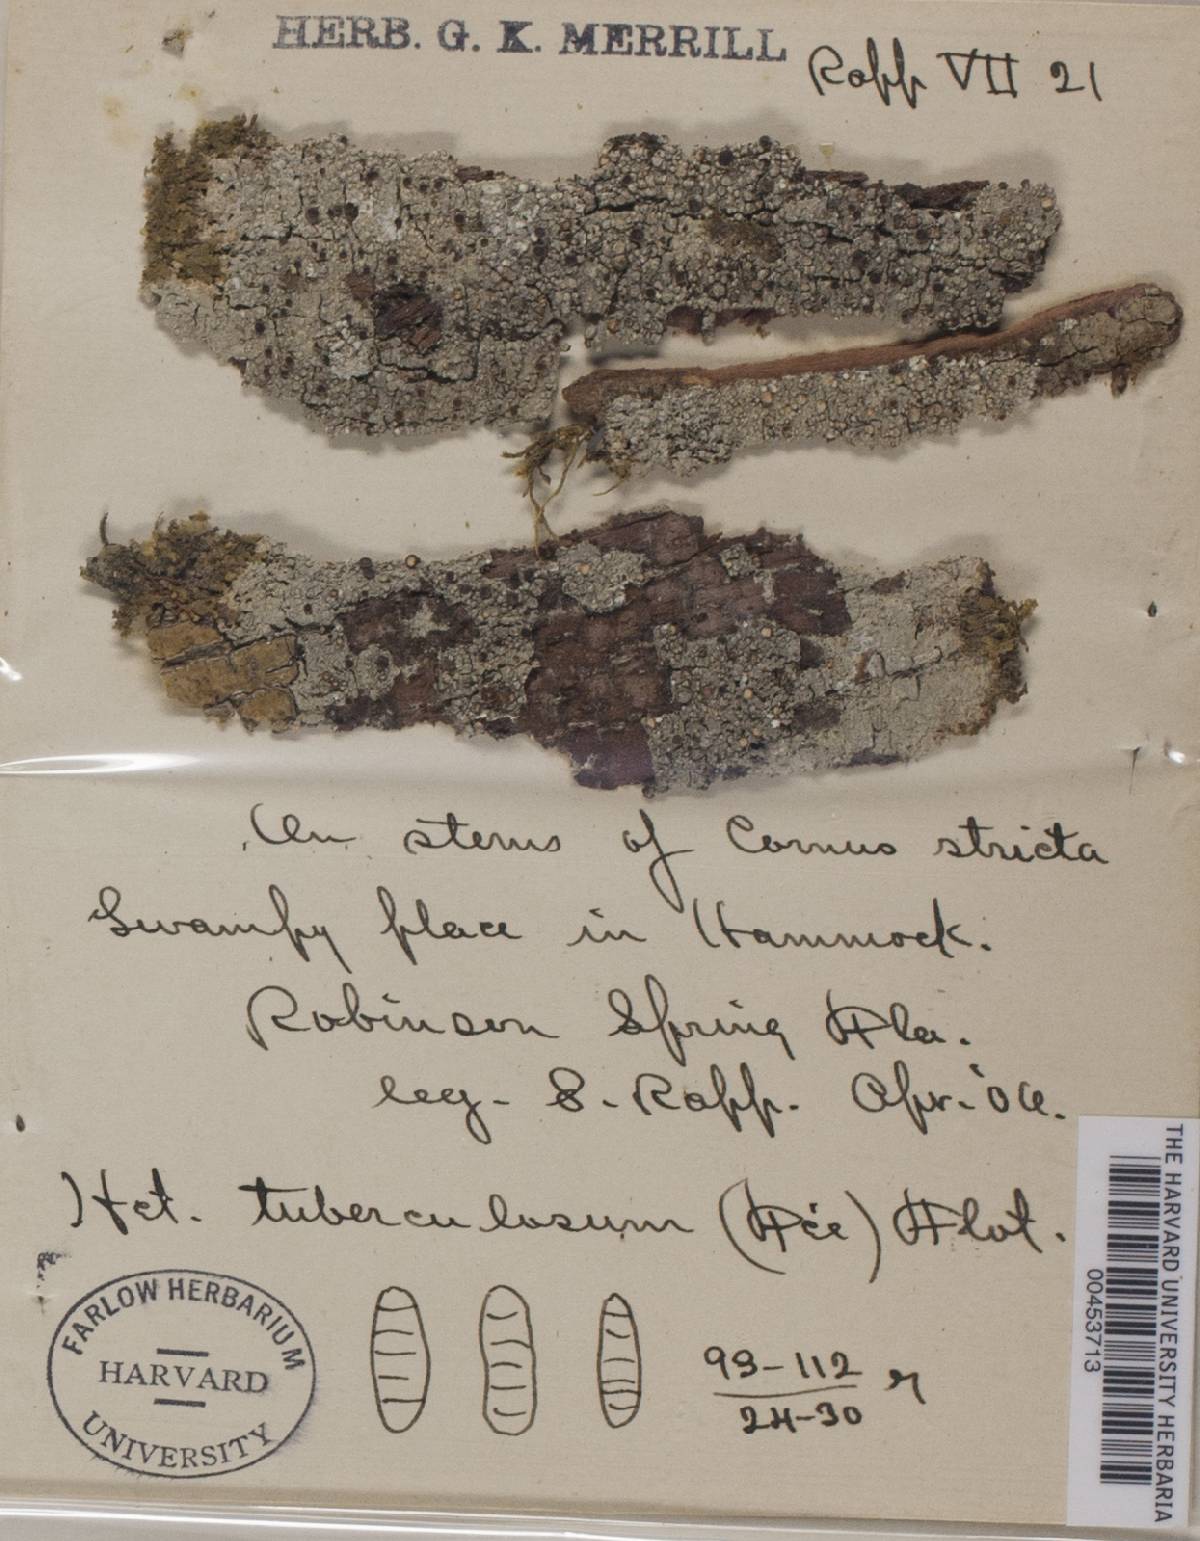 HERB. G. K. MERRILL
Rapp VII 21
On stems of Cornus stricta
Swampy place in Hammock.
Robinson Spring Fla.
leg. S. Rapp. Apr.
Het. tuberculosum (Fée) Flot.
FARLOW HERBARIUM
HARVARD
UNIVERSITY
93-112
24-30
THE HARVARD UNIVERSITY HERBARIA
00453713